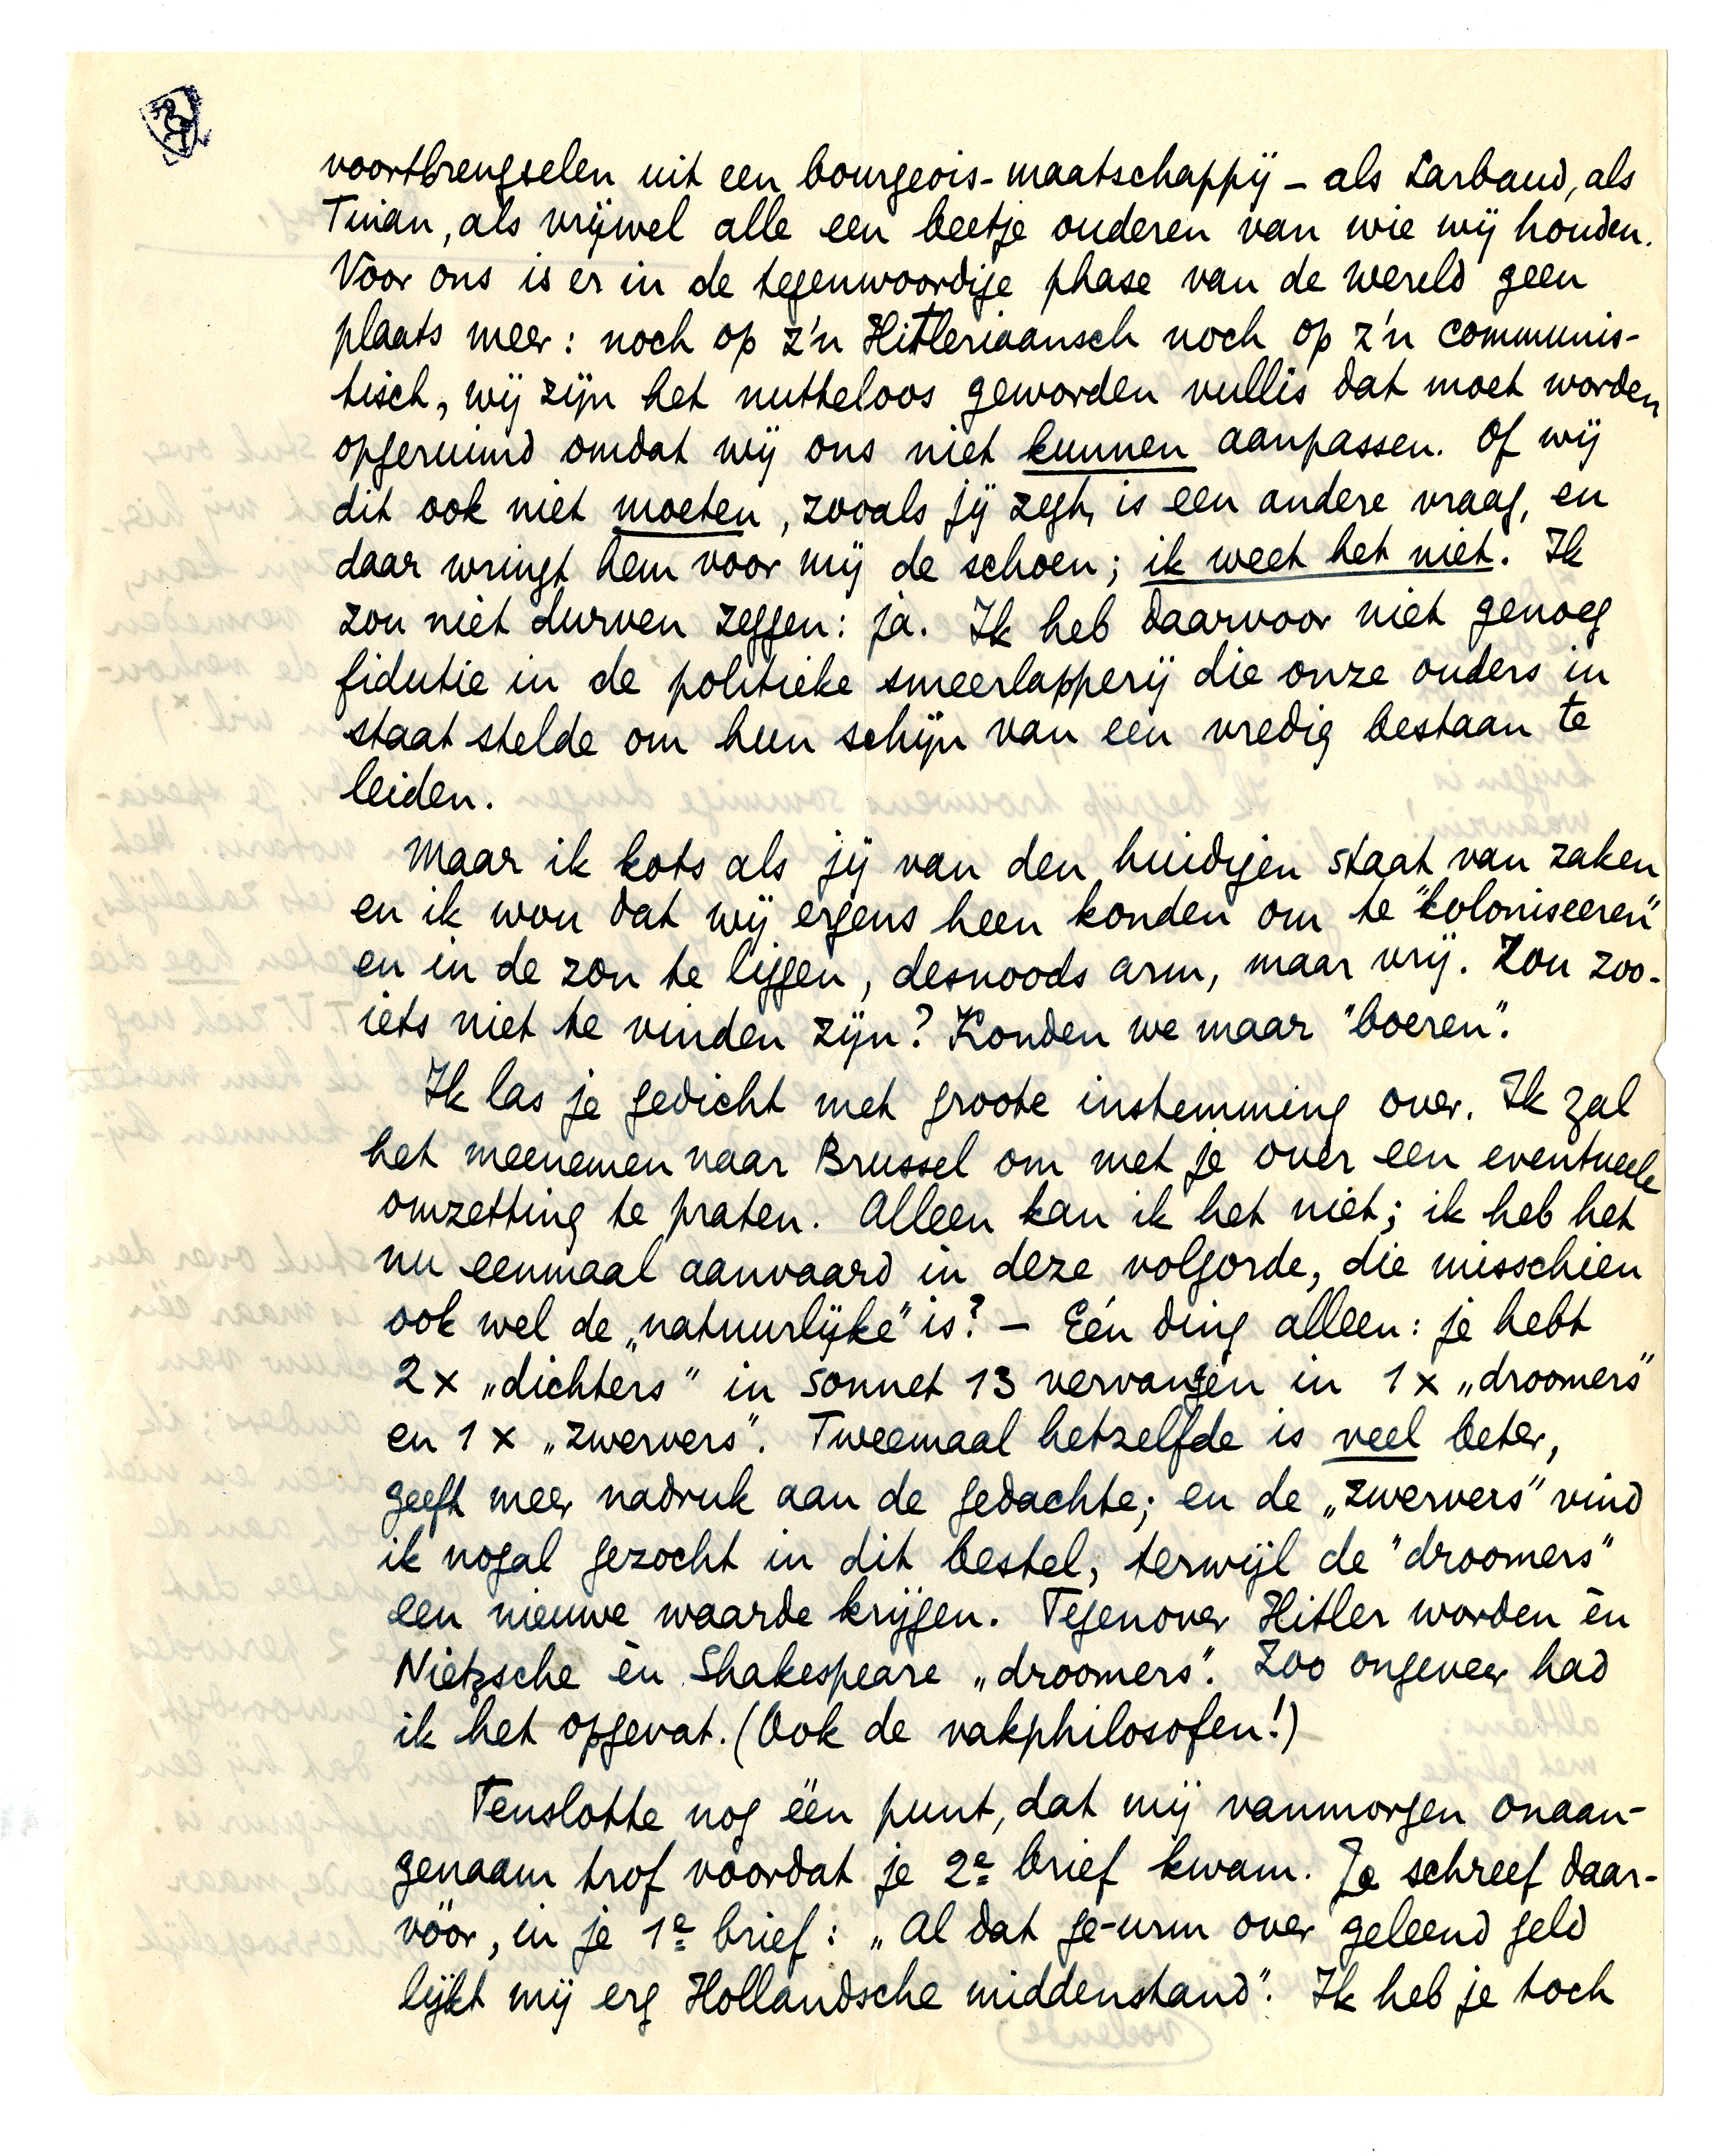 voortbrengselen uit een bourgeois-maatschappij – als Larbaud, als
Tinan, als vrijwel alle een beetje ouderen van wie wij houden.
Voor ons is er in de tegenwoordige phase van de wereld geen
plaats meer: noch op z'n Hitleriaansch noch op z'n communis-
tisch, wij zijn het nutteloos geworden vullis dat moet worden
opgeruimd omdat wij ons niet kunnen aanpassen. Of wij
dit ook niet moeten, zooals jij zegt, is een andere vraag, en
daar wringt hem voor mij de schoen; ik weet het niet. Ik
zou niet durven zeggen: ja. Ik heb daarvoor niet genoeg
fidutie in de politieke smeerlapperij die onze ouders in
staat stelde om hun schijn van een vredig bestaan te
leiden.
Maar ik kots als jij van den huidigen staat van zaken
en ik wou dat wij ergens heen konden om te "koloniseeren"
en in de zon te liggen, desnoods arm, maar vrij. Zou zoo-
iets niet te vinden zijn? Konden we maar "boeren".
Ik las je gedicht met groote instemming over. Ik zal
het meenemen naar Brussel om met je over een eventueele
omzetting te praten. Alleen kan ik het niet; ik heb het
nu eenmaal aanvaard in deze volgorde, die misschien
ook wel de „natuurlijke" is? – Eén ding alleen: je hebt
2 x „dichters" in sonnet 13 vervangen in 1 x „droomers"
en 1 x „zwervers". Tweemaal hetzelfde is veel beter,
geeft meer nadruk aan de gedachte; en de „zwervers" vind
ik nogal gezocht in dit bestel, terwijl de "droomers"
een nieuwe waarde krijgen. Tegenover Hitler worden èn
Nietzsche èn Shakespeare „droomers". Zoo ongeveer had
ik het opgevat. (Ook de vakphilosofen!)
Tenslotte nog één punt, dat mij vanmorgen onaan-
genaam trof voordat je 2e brief kwam. Je schreef daar-
vóór, in je 1e brief: „Al dat ge-urm over geleend geld
lijkt mij erg Hollandsche middenstand". Ik heb je toch